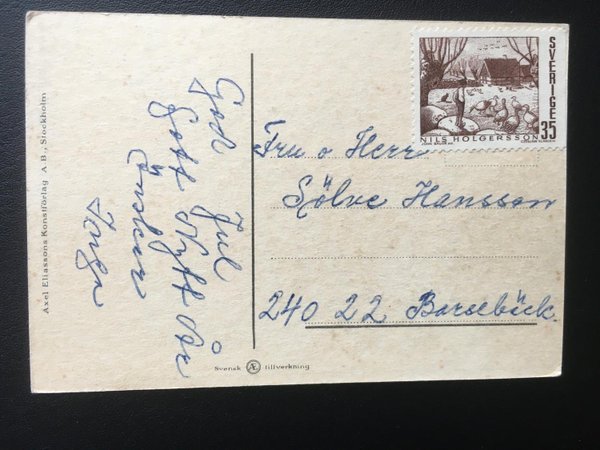 God Jul
Gott Nytt År
Önskar
Inga
Fru o Herr
Sjölve Hansson
240 22 Barsebäck.
SVERIGE 35
NILS HOLGERSSON
Axel Eliassons Konstförlag A.B., Stockholm
Svensk Æ tillverkning